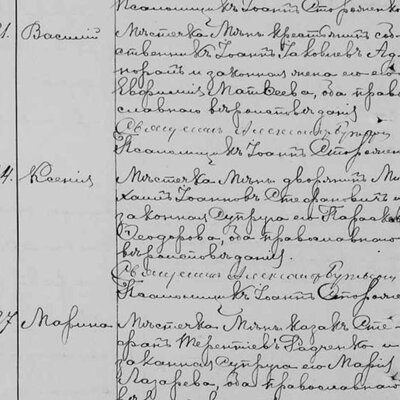 Псаломщикъ Іоаннъ Стороженко
1. Василій
Мѣстечка Мены крестьянинъ соб-
ственникъ Іоаннъ Іаковлевъ
и законная жена его
Евфимія Матѳеева, оба право-
славнаго вѣроисповѣданія
Священникъ Александръ
Псаломщикъ Іоаннъ Стороженко
4. Ксенія
Мѣстечка Мены дворянинъ Ми-
хаилъ Іоанновъ Стефановичъ и
законная супруга его Параск
Ѳеодорова, оба православнаго
вѣроисповѣданія.
Священникъ Александръ
Псаломщикъ Іоаннъ Стороже
27 Марина
Мѣстечка Мены казакъ Сте-
фанъ Терентіевъ Радченко и
законная супруга его Марія
Лазарева, оба православнаго